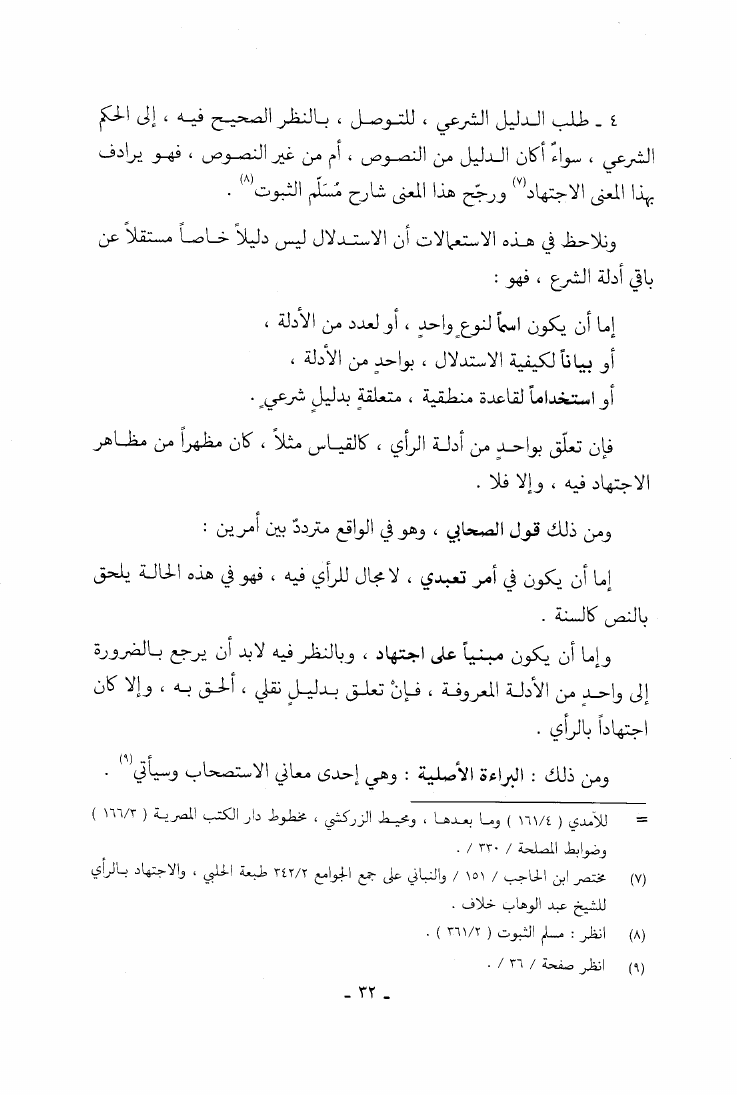 ٤ ـ طلب الـدليل الشرعي ، للتـوصـل ، بـالنظر الصحيـح فيـه ، إلى الحكم
الشرعي ، سواءٌ أكان الـدليل من النصـوص ، أم من غير النصـوص ، فهـو يرادف
بهذا المعنى الاجتهاد(٧) ورجّح هذا المعنى شارح مُسَلَّم الثبوت(٨) .
ونلاحظ في هـذه الاستعمالات أن الاستـدلال ليس دليلاً خـاصـاً مستقلاً عن
باقي أدلة الشرع ، فهو :
إما أن يكون اسماً لنوعٍ واحدٍ ، أو لعدد من الأدلة ،
أو بياناً لكيفية الاستدلال ، بواحدٍ من الأدلة ،
أو استخداماً لقاعدة منطقية ، متعلقةٍ بدليلٍ شرعيٍ .
فإن تعلّق بواحـدٍ من أدلـة الرأي ، كالقيـاس مثلاً ، كان مظهراً من مظـاهر
الاجتهاد فيه ، وإلا فلا .
ومن ذلك قول الصحابي ، وهو في الواقع مترددٌ بين أمرين :
إما أن يكون في أمر تعبدي ، لا مجال للرأي فيه ، فهو في هذه الحالـة يلحق
بالنص كالسنة .
وإما أن يكون مبنياً على اجتهاد ، وبالنظر فيه لابد أن يرجع بـالضرورة
إلى واحـدٍ من الأدلـة المعروفـة ، فـإنْ تعلـق بـدليـلٍ نقلي ، ألحـق بـه ، وإلا كان
اجتهاداً بالرأي .
ومن ذلك : البراءة الأصلية : وهي إحدى معاني الاستصحاب وسيأتي(٩) .
= للآمدي ( ١٦١/٤ ) وما بعدها ، ومحيط الزركشي ، مخطوط دار الكتب المصرية ( ١٦٦/٣ )
وضوابط المصلحة / ٣٣٠ / .
(٧) مختصر ابن الحاجب / ١٥١ / والبناني على جمع الجوامع ٣٤٢/٢ طبعة الحلبي ، والاجتهاد بـالرأي
للشيخ عبد الوهاب خلاف .
(٨) انظر : مسلم الثبوت ( ٣٦١/٢ ) .
(٩) انظر صفحة / ٣٦ / .
ـ ٣٢ ـ